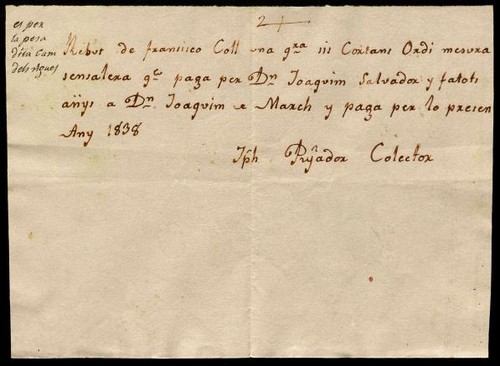 2
es per
la pesa
dita Cam
dels Agues
Rebut de francisco Coll una qra sis Cortans Ordi mesura
sensalera qe paga per Dn Joaquim Salvador y fa tots
añys a Dn Joaquim de March y paga per lo presen
Any 1838
Jph Colector